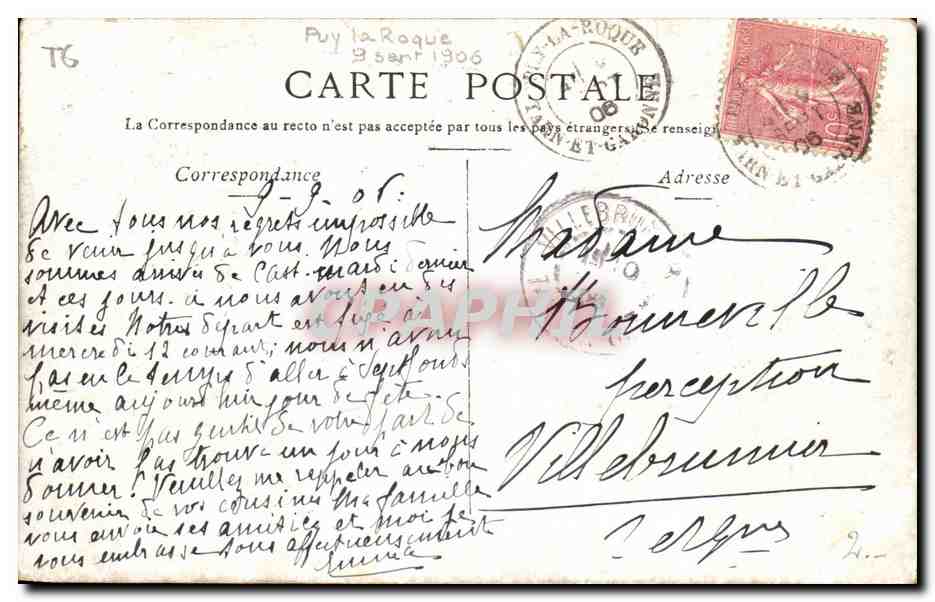 T6
Puy la Roque
9 sept 1906
CARTE POSTALE
PUY-LA-ROQUE
06
TARN-ET-GARONNE
La Correspondance au recto n'est pas acceptée par tous les pays étrangers. Se renseig
Correspondance
Adresse
9-9-06.
Avec tous nos regrets impossible
de venir jusqu'à vous. Nous
sommes arrivés de Cast. mardi dernier
et ces jours-ci nous avons eu des
visites Notre départ est fixé à
mercredi 12 courant; nous n'avons
pas eu le temps d'aller à Septfonds
même aujourd'hui jour de fête.
Ce n'est pas gentil de votre part de
n'avoir pas trouvé un jour à nous
donner! Veuillez me rappeler au bon
souvenir de vos cousines Ma famille
vous envoie ses amitiés et moi je
vous embrasse tous affectueusement
Emma
Madame
Bonneville
perception
Villebrumier
VILLEBRUMIER
CPARPHIL
2.-